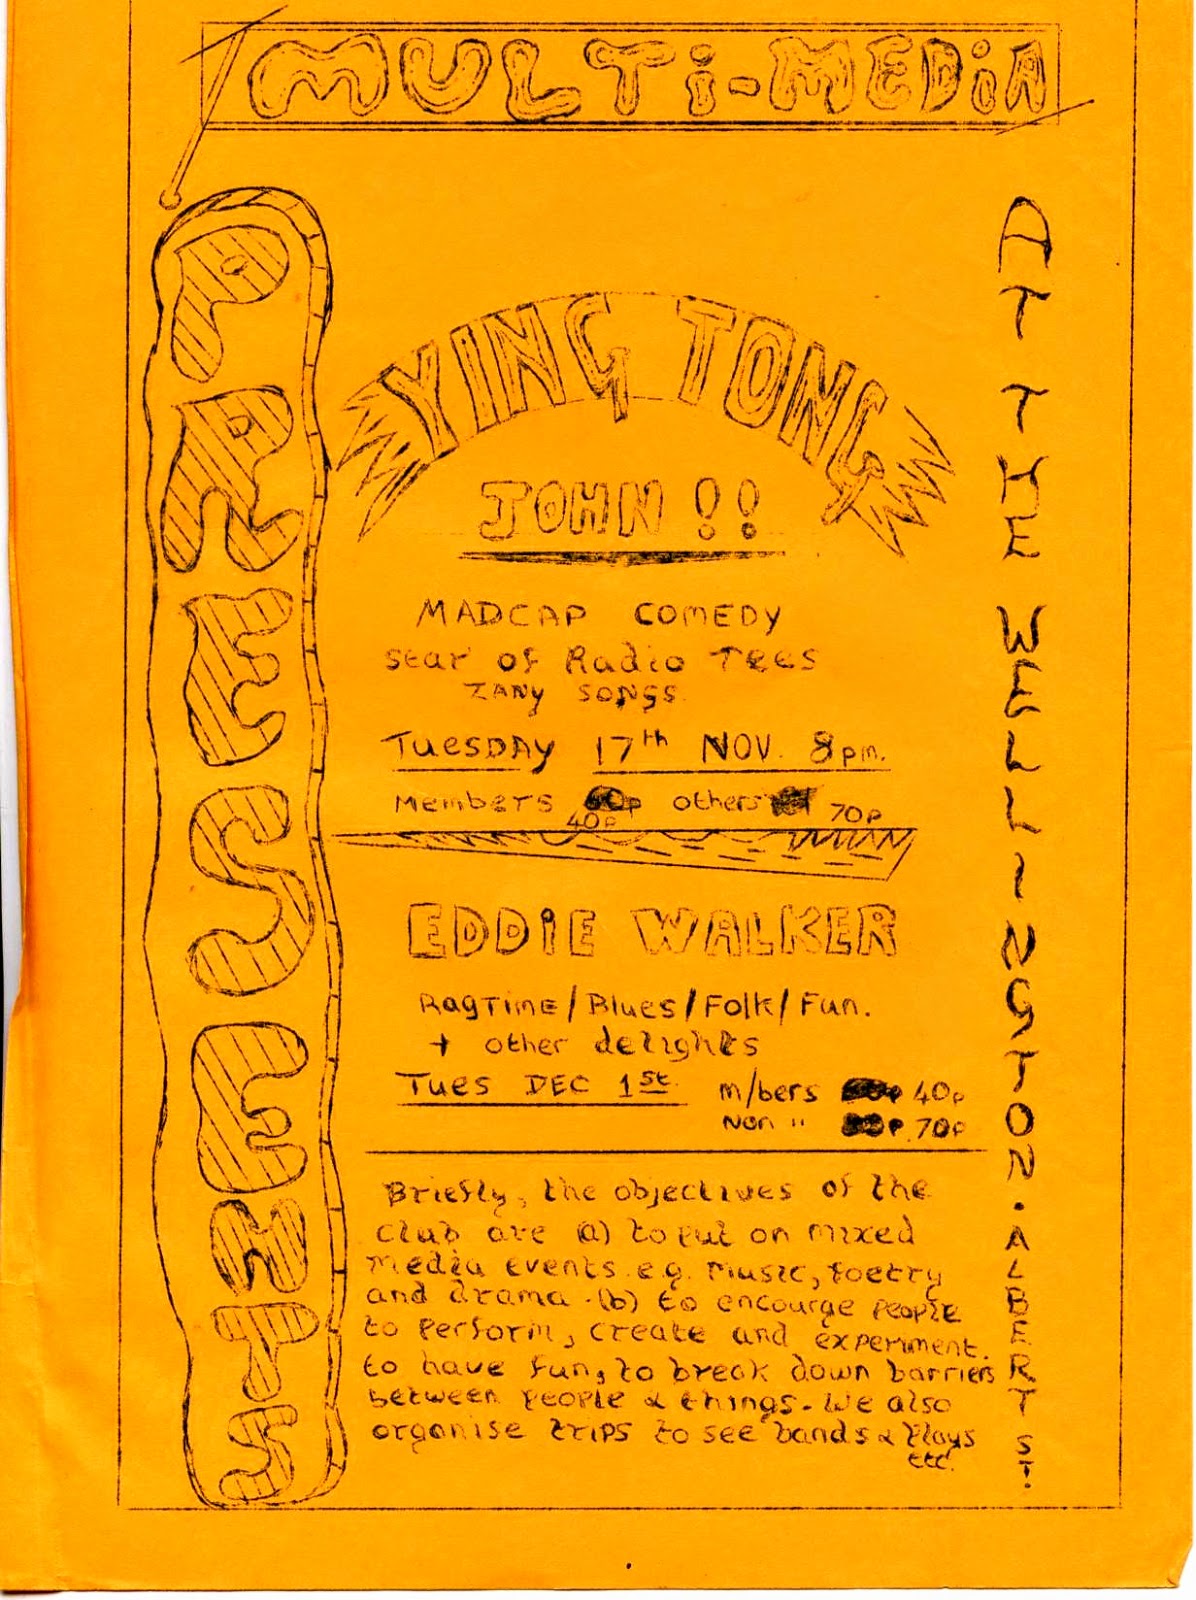 MULTi-MEDiA
PRESENTS
AT THE WELLINGTON. ALBERT ST.
YING TONG
JOHN !!
MADCAP COMEDY
Star of Radio TEES
ZANY SONGS
TUESDAY 17th NOV. 8pm.
Members 40p others 70p
EDDiE WALKER
RagTime/Blues/Folk/Fun.
+ other delights
Tues DEC 1st. m/bers 40p
Non " 70p
Briefly, the objectives of the
club are (a) to put on mixed
media events e.g. Music, Poetry
and drama. (b) to encourge people
to perform, create and experiment.
to have fun, to break down barriers
between people & things. We also
organise trips to see bands & Plays
etc.